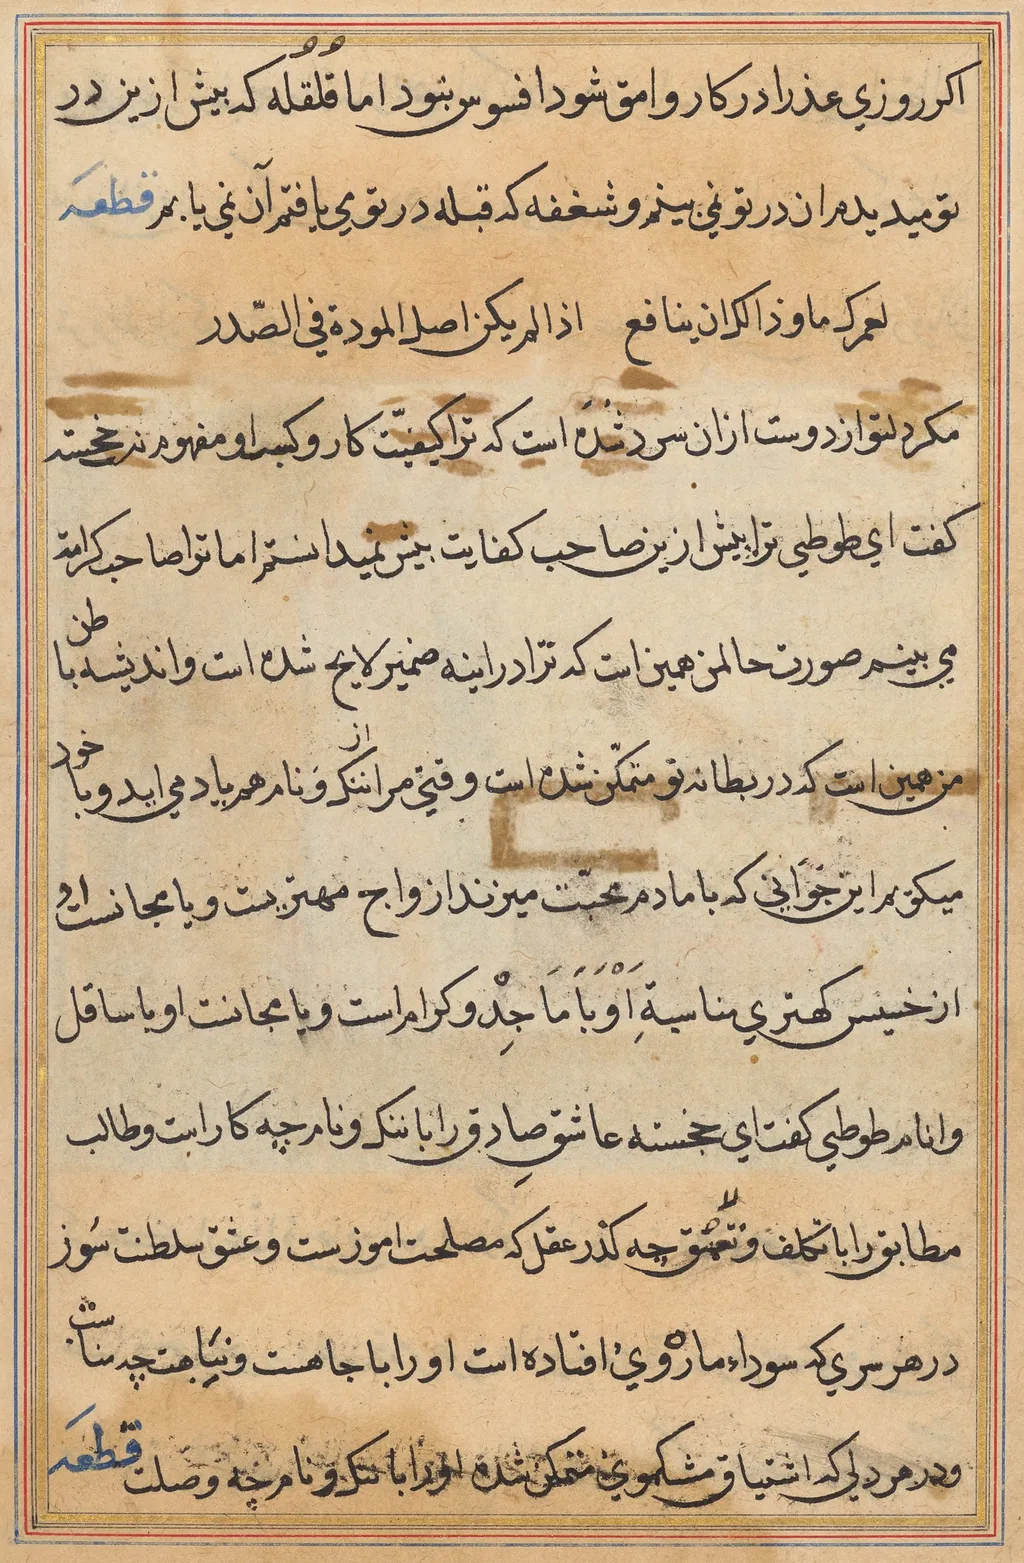 اکر روزي عذرا در کار وامق شود افسوس نبود اما قلقله که بیش ازین در
تو میدیدم ان در تو نمي بینم و شغفه که قبله در توي یافتم آن نمي یابم قطعه
لعمرک ما وذالک ان ینافع اذا لم یکن اصل المودة في الصّدر
مکر دلتو از دوست ازان سرد شده است که ترا کیفیّت کار و کمیت او مفهوم نه خجسته
کفت اي طوطي ترا بیش ازین صاحب کفایت بیش نمیدانستم اما ترا صاحب کرامت
مي بینم صورت حالمن همین است که ترا در اینه ضمیر لایح شده است و اندیشه باطن
من همین است که در بطانه تو متمکّن شده است وقتي مرا از ننک و نام هم یاد مي اید و با خود
میکویم این جواني که با ما دم محبّت میزند ازواج مهتریست و یا مجانست او
از خسیس کهتري مناسبة او با ماجد و کرام است و یا مجانست او با ساقل
و انام طوطي کفت اي خجسته عاشق صادق را با ننک و نام چه کار است و طالب
مطابق را با تکلف و تعمق چه کذر عقل که مصلحت اموزست و عشق سلطنت سوز
در هر سري که سوداء ماه روي افتاده است او را با جاهت و نباهت چه مناسبت
و در هر دلي که اشتیاق مشکموي متمکن شده او را با ننک و نام چه وصلت قطعه